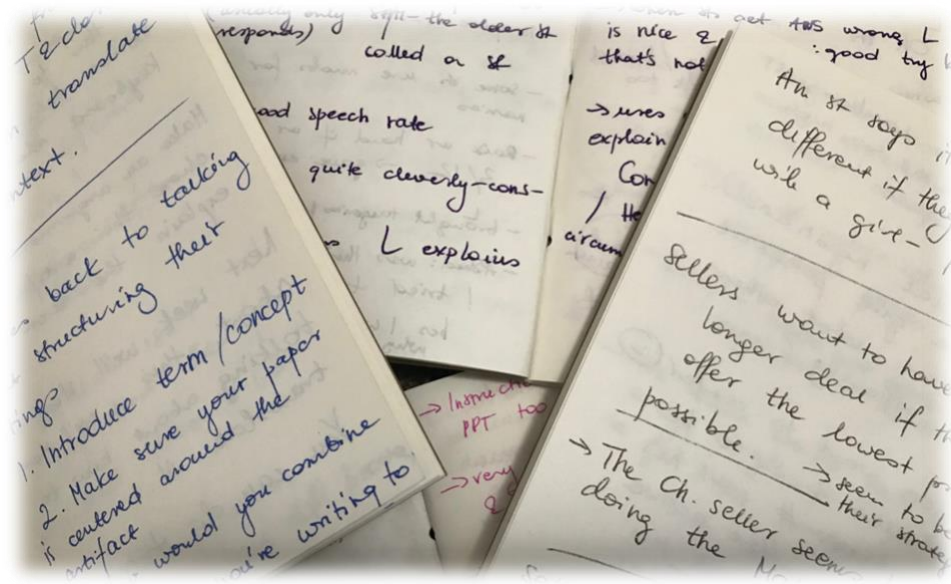 T &
translate
ntext.
back to talking
structuring their
ings
1. Introduce term/concept
2. Make sure your paper
is centered around the
artifact
would you combine
you're writing to
(usually only the older st
responds)
called on st
ood speech rate
quite cleverly-cons-
L explains
is nice &
that's not
→ uses
explain
Con
/ He
circum
→ Instructi
PPT too
→ very
&
get ANS wrong, L
: good try
An st says i
different if they
with a give-
Sellers want to have
longer deal if th
offer the lowest pr
possible.
→ seem to b
their strate
→ The Ch. seller seem
doing the Mo